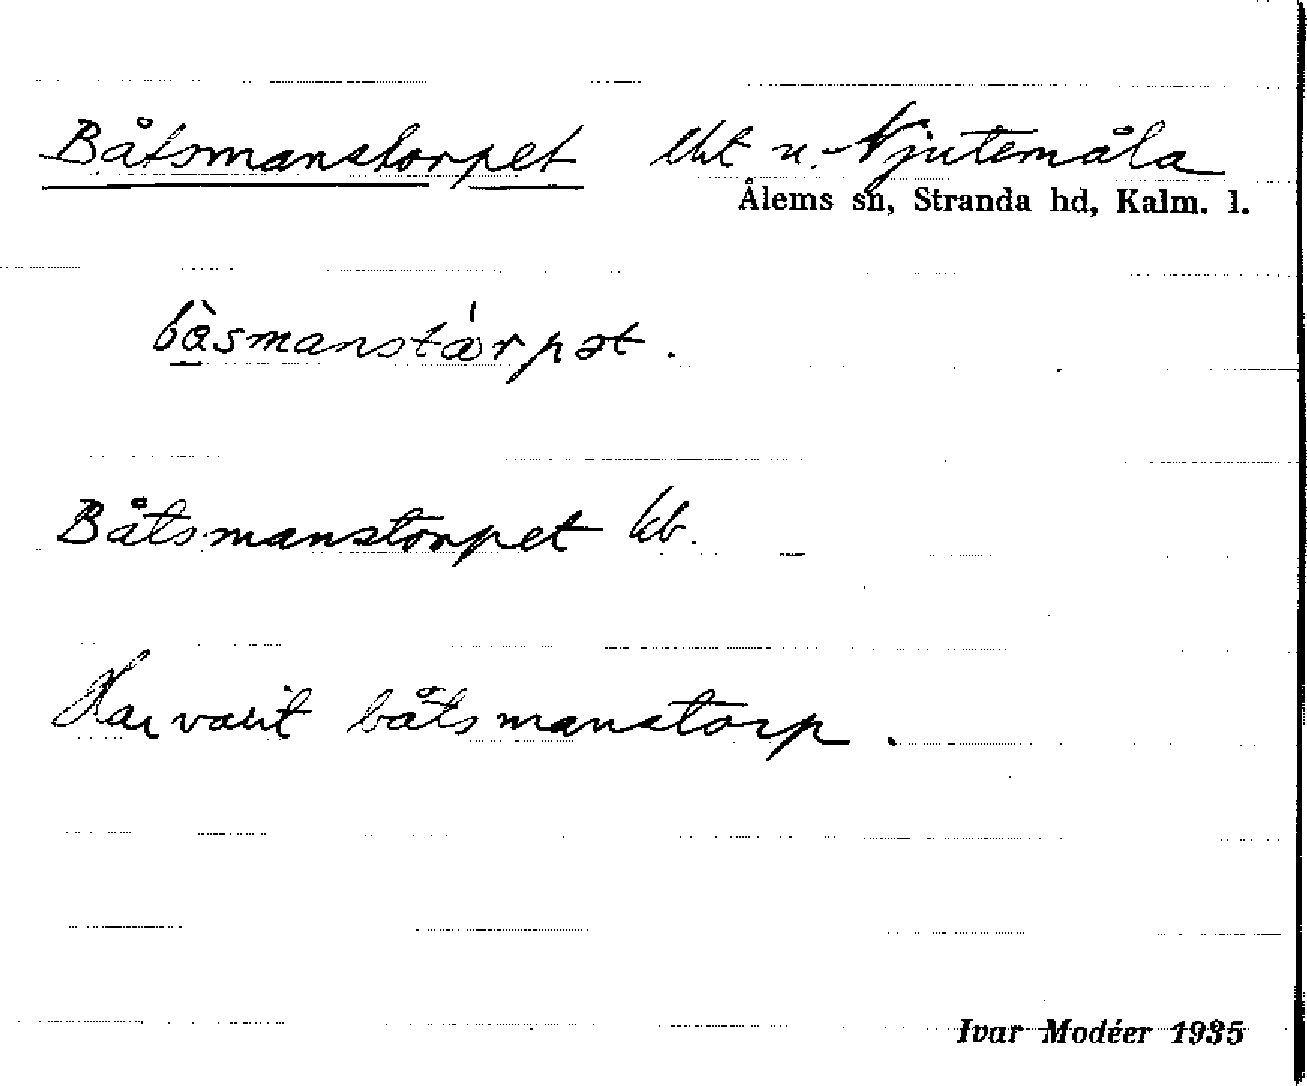 Båtsmanstorpet lht u. Njutemåla
Ålems sn, Stranda hd, Kalm. l.
bàsmanstårpət.
Båtsmanstorpet kb.
Har varit båtsmanstorp.
Ivar Modéer 1935